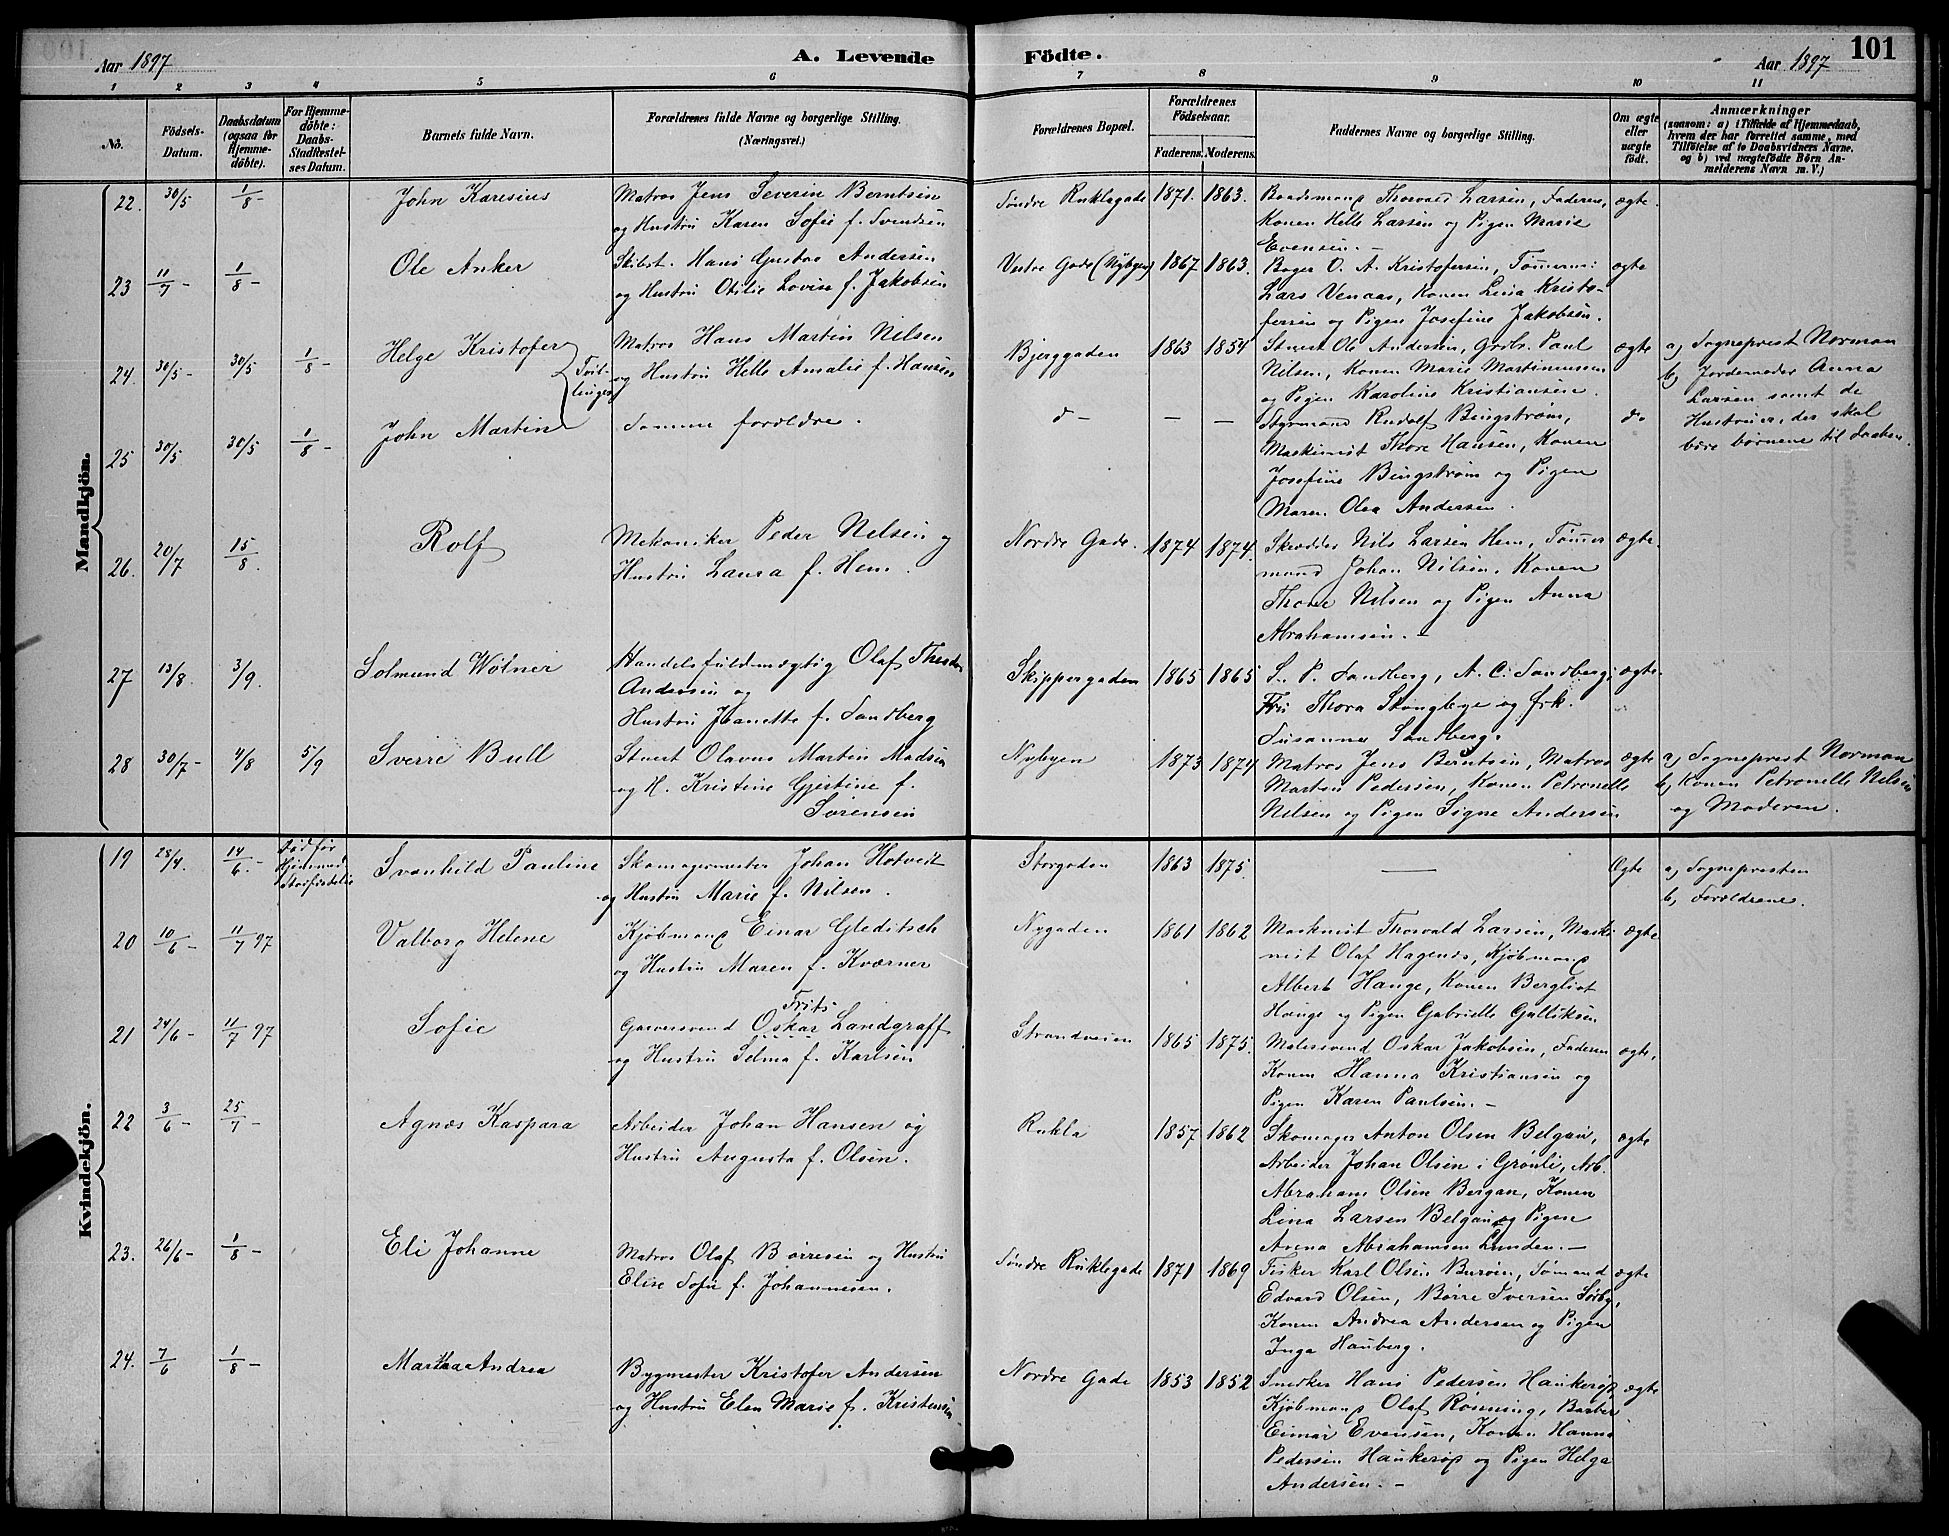 Aar 1897
A. Levende
Födte.
Aar 1897
101
1 2 3 4 5 6 7 8 9 10 11
No.
Födsels-Datum.
Daabsdatum (ogsaa for Hjemme-döbte).
For Hjemme-döbte: Daabs-Stadfæstel-ses Datum.
Barnets fulde Navn.
Forældrenes fulde Navne og borgerlige Stilling.
(Næringsvei.)
Forældrenes Bopæl.
Forældrenes Födselsaar.
Faderens.
Moderens.
Faddernes Navne og borgerlige Stilling.
Om ægte eller uægte födt.
Anmærkninger
(saasom: a) i Tilfælde af Hjemmedaab,
hvem der har forrettet samme, med
Tilföielse af to Daabsvidners Navne.
og b) ved uægtefödte Börn An-
melderens Navn m. V.)
Mandkjön.
22. 30/5 1/8 - John Karesius
Matros Jens Severin Berntsen
og Hustru Karen Sofie f. Svendsen
Søndre Ruklegade 1871. 1863.
Baadsmand Thorvald Larsen, Faderen,
Konen Helle Larsen og Pigen Marie
Evensen. -
ægte.
23 11/7 - 1/8 - Ole Anker
Skibst. Hans Gustav Andersen
og Hustru Otilie Lovise f. Jakobsen
Vestre Gade (Nybyen) 1867 1863.
Bager O. A. Kristofersen, Tømerm:
Lars Venaas, Konen Lina Kristo-
fersen og Pigen Josefine Jakobsen.
ægte
24. 30/5 - 30/5 1/8 - Helge Kristofer
Tvil-
linger
Matros Hans Martin Nilsen
og Hustru Helle Amalie f. Hansen
Bjerggaden 1863 1854
Stuert Ole Andersen, Grbr. Paul
Nilsen, Konen Marie Martinussen
og Pigen Karoline Kristiansen.
ægte
a, Sogneprest Norman
b, Jordemoder Anna
Larsen samt de
Hustruer, der skal
bære børnene til daaben.
25 30/5 30/5 1/8 - John Martin
Samme forældre.
do - - -
Styrmand Rudolf Bingstrøm,
Maskinist Thore Hansen, Konen
Josefine Bingstrøm og Pigen
Maren Olea Andersen.
do
26. 20/7 15/8. Rolf
Mekaniker Peder Nilsen og
Hustru Laura f. Hem.
Nordre Gade. 1874 1874.
Skrædder Nils Larsen Hem, Tømmer
mand Johan Nilsen, Konen
Thora Nilsen og Pigen Anna
Abrahamsen. -
ægte.
27 13/8. 3/9. Solmund Wölner
Handelsfuldmægtig Olaf Theodor
Andersen og
Hustru Jeanette f. Sandberg
Skippergaden 1865 1865
S. P. Sandberg, A. C. Sandberg,
Fru Thora Stanglege og frk.
Susanna Sandberg.
ægte.
28 30/7 - 4/8 5/9 Sverre Bull
Stuert Olavus Martin Madsen
og H. Kristine Gjertine f.
Sørensen
Nybyen 1873 1874
Matros Jens Berntsen, Matros
Martin Pedersen, Konen Petronelle
Nilsen og Pigen Signe Andersen
ægte
a, Sogneprest Norman
b, Konen Petronelle Nilsen
og Moderen.
Kvindekjön.
19 28/4. 14/6. - død før
Svanhild Pauline
Skomagermester Johan Hotvedt
og Hustru Marie f. Nilsen.
Storgaden 1863 1875.
—
Ægte
a, Sognepresten
b, Forældrene.
20 10/6 - 11/7 97 Valborg Helene
Kjøbmand Einar Gleditsch
og Hustru Maren f. Kværner
Nygaden 1861 1862
Maskinist Thorvald Larsen, Maski
nist Olaf Hagenæs, Kjøbmand
Albert Hange, Konen Bergliot
Hange og Pigen Gabrielle Gulliksen
ægte
21 24/6 - 11/7 97 Sofie
Frits
Garversvend Oskar Landgraff
og Hustru Selma f. Karlsen
Strandveien 1865 1875.
Malersvend Oskar Jakobsen, Faderen
Konen Hanna Kristiansen og
Pigen Karen Paulsen. -
ægte,
22 3/6 - 25/7 - Agnæs Kaspara
Arbeider Johan Hansen og
Hustru Augusta f. Olsen.
Rukla 1857 1862
Skomager Anton Olsen Belgau,
Arbeider Johan Olsen i Grønli, Arb.
Abraham Olsen Bergan, Konen
Lina Larsen Belgau og Pigen
Anna Abrahamsen Lunden. -
ægte
23. 26/6 - 1/8 - Eli Johanne
Matros Olaf Børresen og Hustru
Elise Sofie f. Johannesen.
Søndre Ruklegade 1871 1869
Fisker Karl Olsen Burøen, Sømand
Edvard Olsen, Børre Iversen Sørby,
Konen Andrea Andersen og Pigen
Inga Hauberg.
ægte
24. 7/6 1/8 - Martha Andrea
Bygmester Kristofer Andersen
og Hustru Elen Marie f. Kristensen
Nordre Gade 1853 1852
Snedker Hans Pedersen Haukerøp
Kjøbmand Olaf Rønning, Barber
Einar Evensen, Konen Hanna
Pedersen Haukerøp og Pigen Helga
Andersen. -
ægte